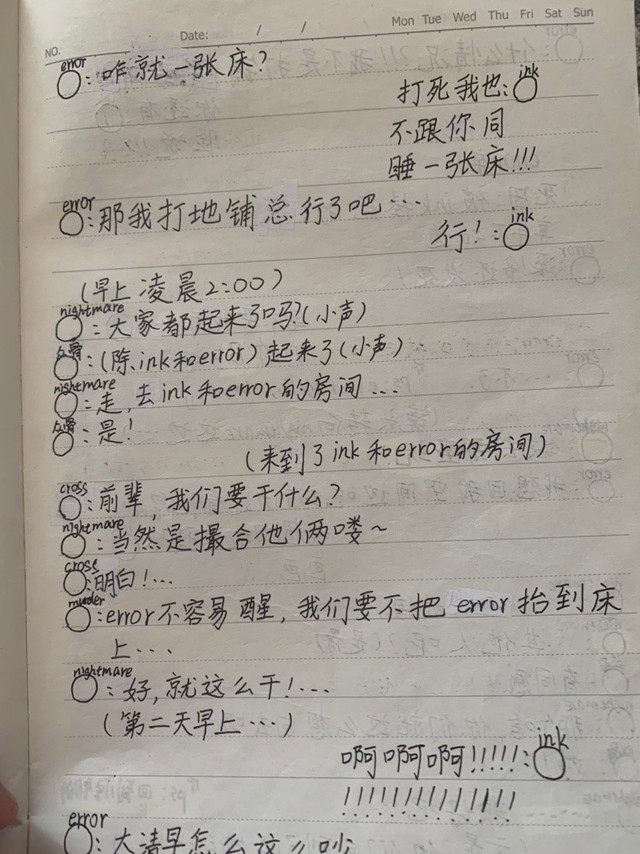 NO.
Date: / /
Mon Tue Wed Thu Fri Sat Sun
error
:咋就一张床?
ink
打死我也:
不跟你同
睡一张床!!!
error
:那我打地铺总行了吧…
ink
行!:
(早上凌晨2:00)
nightmare
:大家都起来了吗?(小声)
众骨
:(除ink和error)起来了(小声)
nightmare
:走,去ink和error的房间...
众骨
:是!
(来到了ink和error的房间)
cross
:前辈,我们要干什么?
nightmare
:当然是撮合他俩喽~
cross
:明白!...
murder
:error不容易醒,我们要不把error抬到床
上...
nightmare
:好,就这么干!...
(第二天早上...)
ink
啊啊啊!!!!!:
!!!!!!!!!!!!!
error
:大清早怎么这么吵